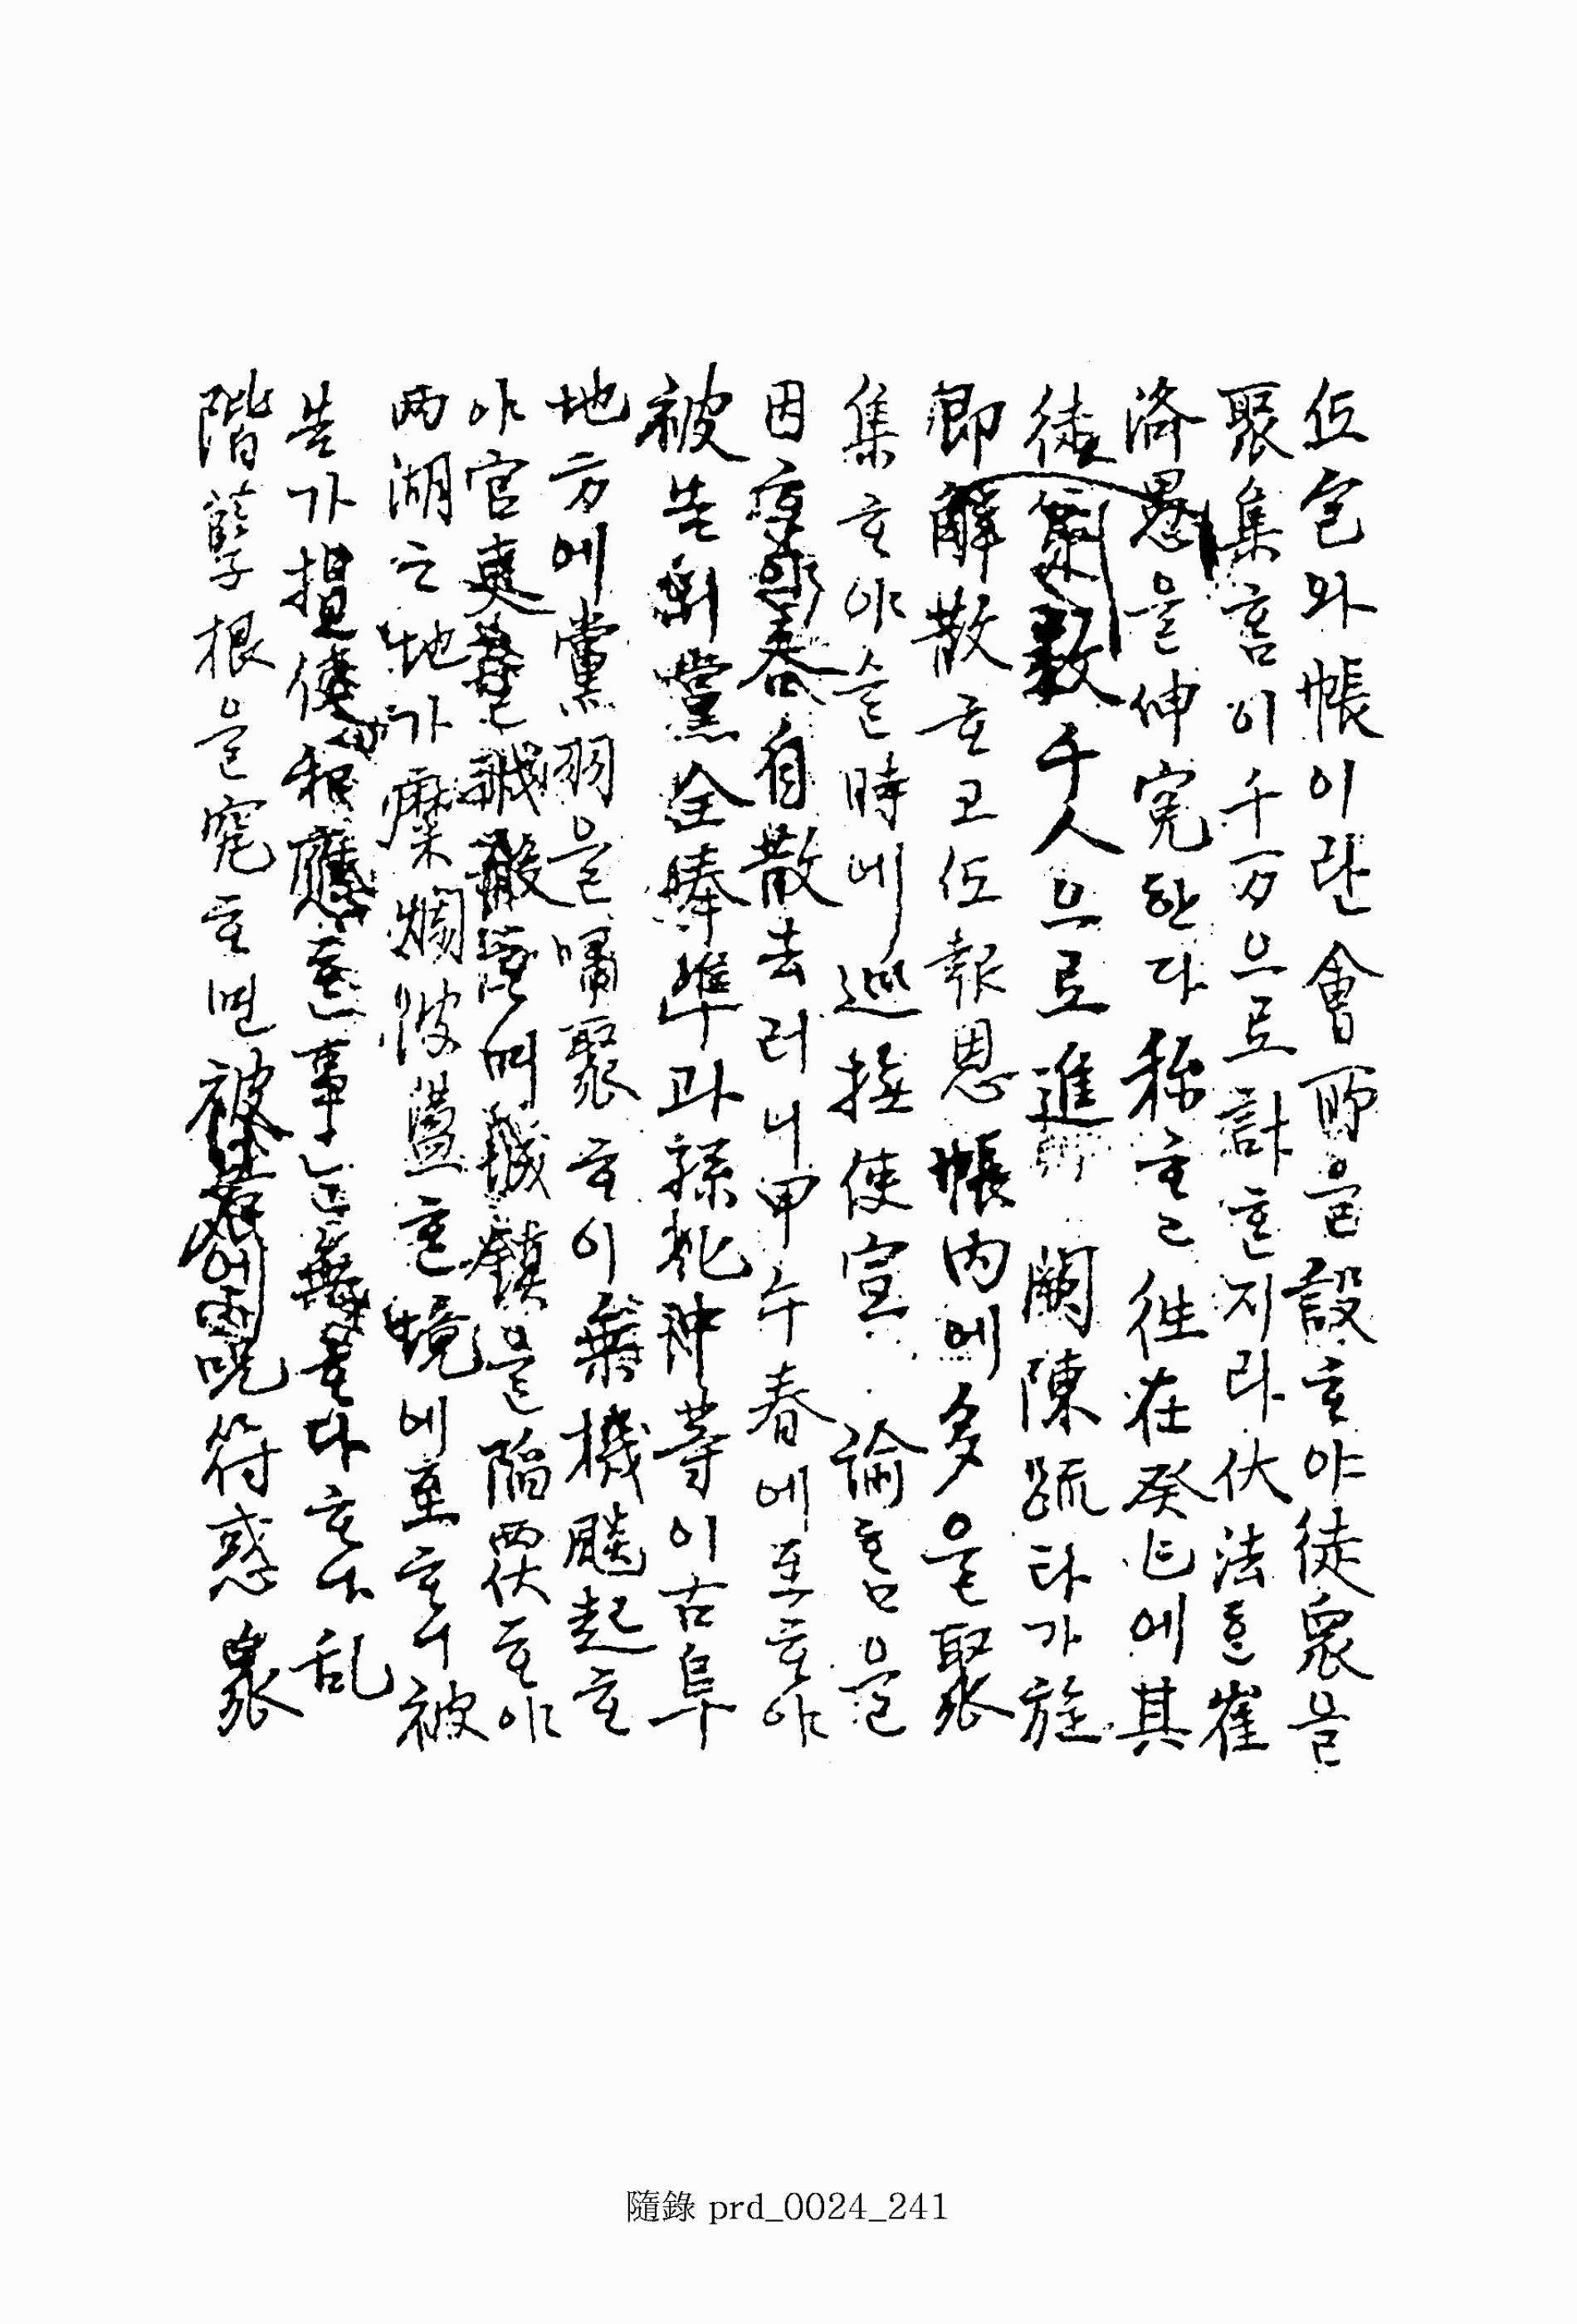 伍包와帳이란會所을設ᄒᆞ야徒衆을
聚集홈이千万으로計ᄒᆞᆫ지라伏法ᄒᆞᆫ崔
濟愚을伸寃한다稱ᄒᆞ고徃在癸巳에其
徒數千人으로進 闕陳疏타가旋
卽解散ᄒᆞ고伍報恩帳內에多을聚
集ᄒᆞ야슬時에 巡撫使宣 諭홈을
因ᄒᆞ야自散去러니甲午春에至ᄒᆞ야
被告와黨全琫準과孫化仲等이古阜
地方에黨羽을嘯聚ᄒᆞ이乘機颷起ᄒᆞ
야官吏을戕殺 城鎭을陷覆ᄒᆞ야
兩湖之地가糜爛波盪ᄒᆞᆫ境에至ᄒᆞ니被
告가指使和應ᄒᆞᆫ事ᄂᆞᆫ無ᄒᆞ다ᄒᆞ나乱
階孽根을究ᄒᆞ면被告의呪符惑衆
隨錄 prd_0024_241